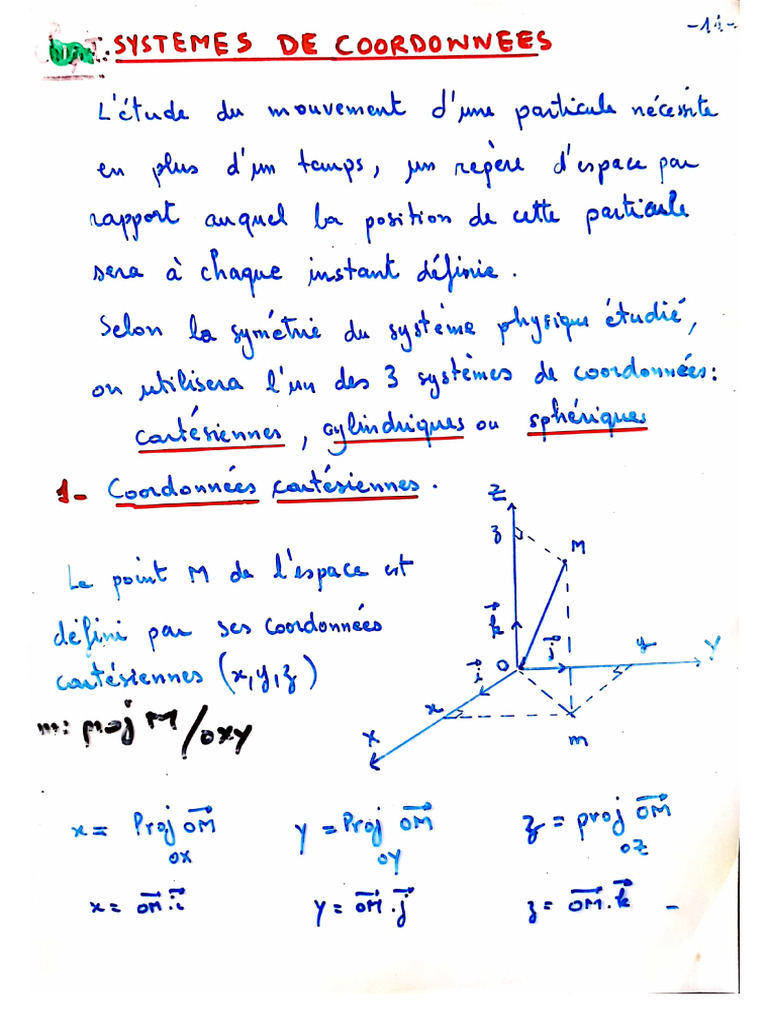 SYSTEMES DE COORDONNEES
-11-
L'étude du mouvement d'une particule nécessite
en plus d'un temps, un repère d'espace par
rapport auquel la position de cette particule
sera à chaque instant définie.
Selon la symétrie du système physique étudié,
on utilisera l'un des 3 systèmes de coordonnées:
cartésiennes, cylindriques ou sphériques
1- Coordonnées cartésiennes.
Le point M de l'espace est
défini par ses coordonnées
cartésiennes (x,y,z)
m: proj M/oxy
Z
z
M
k
j
y
Y
O
i
x
X
m
x = Proj OM
OX
Y = Proj OM
OY
z = proj OM
OZ
x = OM.i
Y = OM.j
z = OM.k -